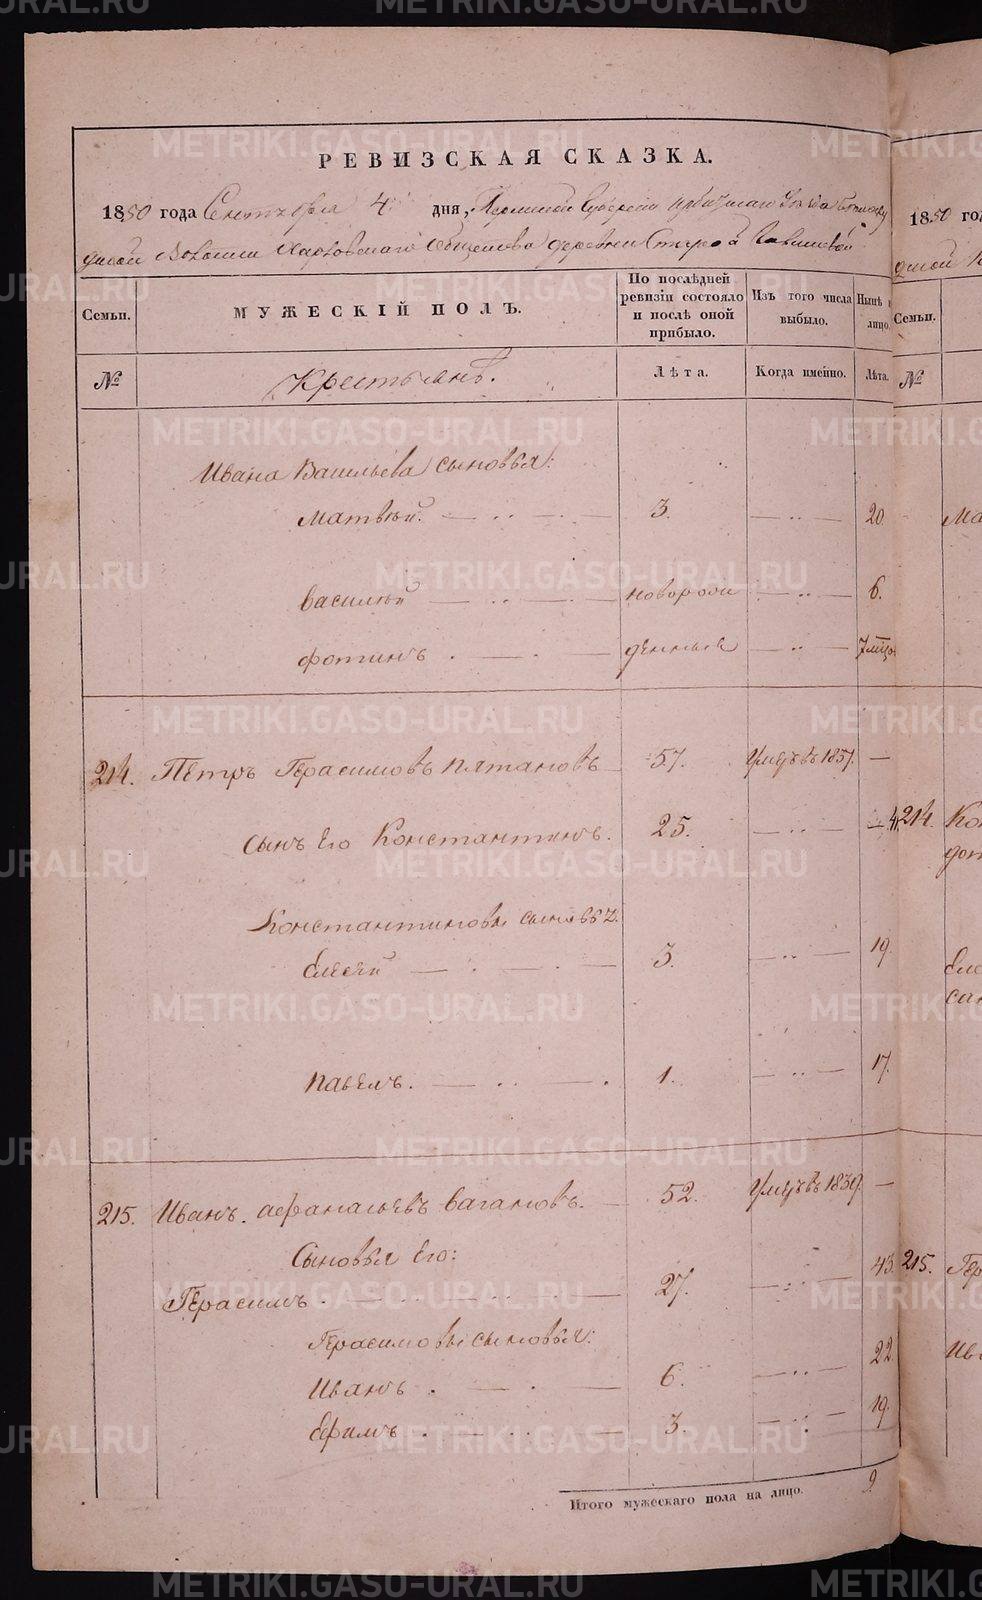 METRIKI.GASO-URAL.RU
РЕВИЗСКАЯ СКАЗКА.
1850 года Сентября 4 дня, Пермской Губернии Ирбитскаго Уезда
Волости Харловскаго общества деревни Старой
Семьи.
МУЖЕСКІЙ ПОЛЪ.
По послѣдней ревизіи состояло и послѣ оной прибыло.
Изъ того числа выбыло.
Нынѣ лицо.
№
Крестьянъ.
Лѣта.
Когда имейно.
Лѣта.
Ивана Васильева сыновья:
Матвѣй. 3. 20.
Василий новорож 6.
Фотинъ денные 7 мѣця.
214. Петръ Герасимовъ Пятановъ 57. Умеръ въ 1837. —
сынъ Его Константинъ. 25. 41.
Константиновы сыновья:
Елесей 3. 19.
Павелъ. 1. 17.
215. Иванъ Афанасьевъ Вагановъ. 52. Умеръ въ 1839. —
Сыновья Его:
Герасимъ. 27. 43.
Герасимовы сыновья:
Иванъ 6. 22.
Ефимъ 3. 19.
Итого мужескаго пола на лицо. 9
1850 год
Семьи.
№
Ма
214. Кон
доч
Еле
215. Гер
Ив